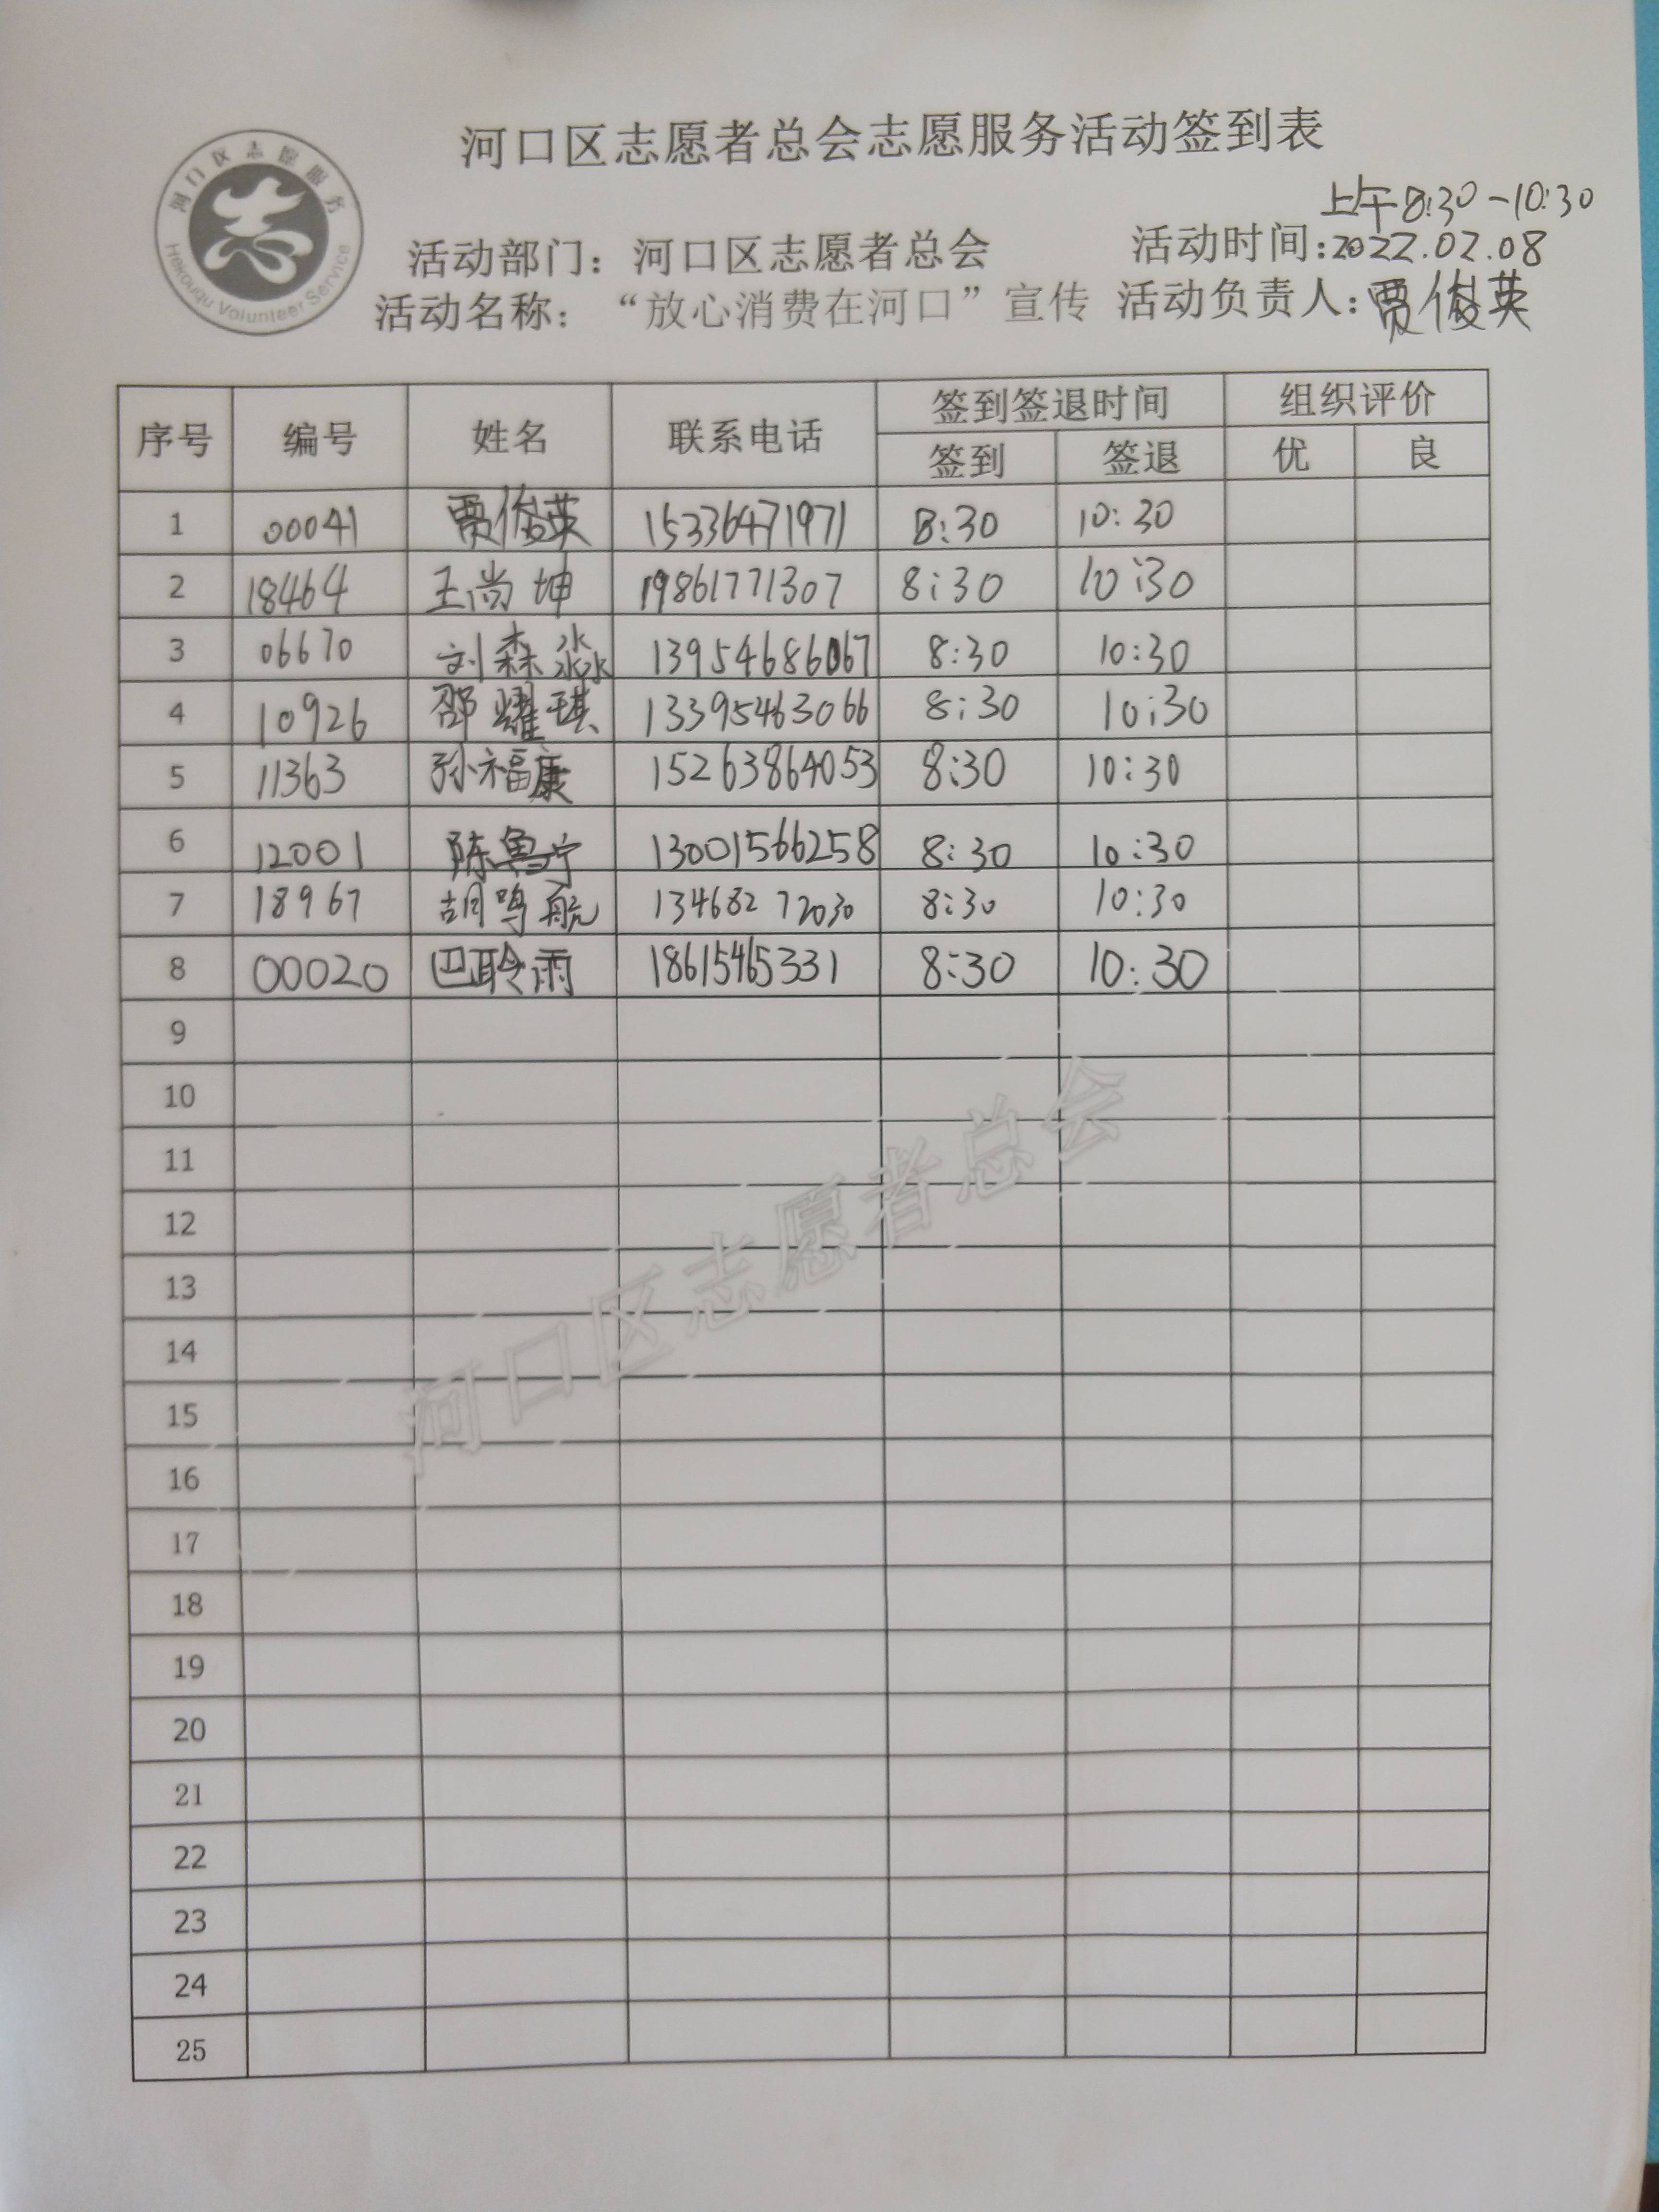 河口区志愿者总会志愿服务活动签到表
河口区志愿服务
志
Hekouqu Volunteer Service
上午8:30-10:30
活动部门：河口区志愿者总会 活动时间:2022.02.08
活动名称：“放心消费在河口”宣传 活动负责人:贾俊英
序号 编号 姓名 联系电话 签到签退时间 组织评价
签到 签退 优 良
1 00041 贾俊英 15336471971 8:30 10:30
2 18464 王尚坤 19861771307 8:30 10:30
3 06670 刘森淼 13954686067 8:30 10:30
4 10926 邵耀琪 13395463066 8:30 10:30
5 11363 孙福康 15263864053 8:30 10:30
6 12001 陈鲁宁 13001566258 8:30 10:30
7 18967 胡鸣航 13468272030 8:30 10:30
8 00020 巴聆雨 18615465331 8:30 10:30
9
10
11
12
13
14
15
16
17
18
19
20
21
22
23
24
25
河口区志愿者总会